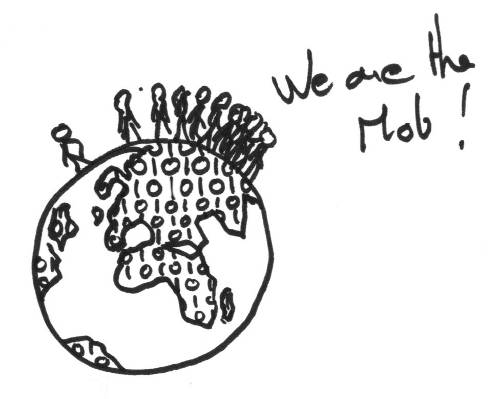 We are the
Mob!